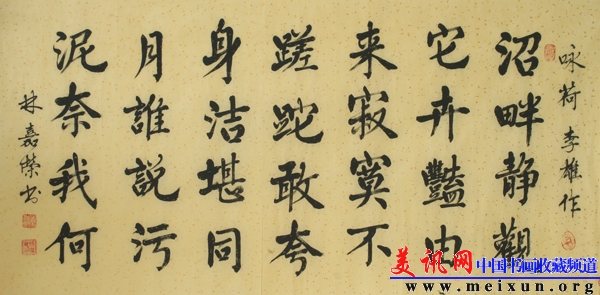 咏荷 李雄作
沼畔静觀
它卉豔由
来寂寞不
蹉跎敢夸
身洁堪同
月誰説污
泥奈我何
林嘉榮书
美讯网 中国书画收藏频道
www.meixun.org